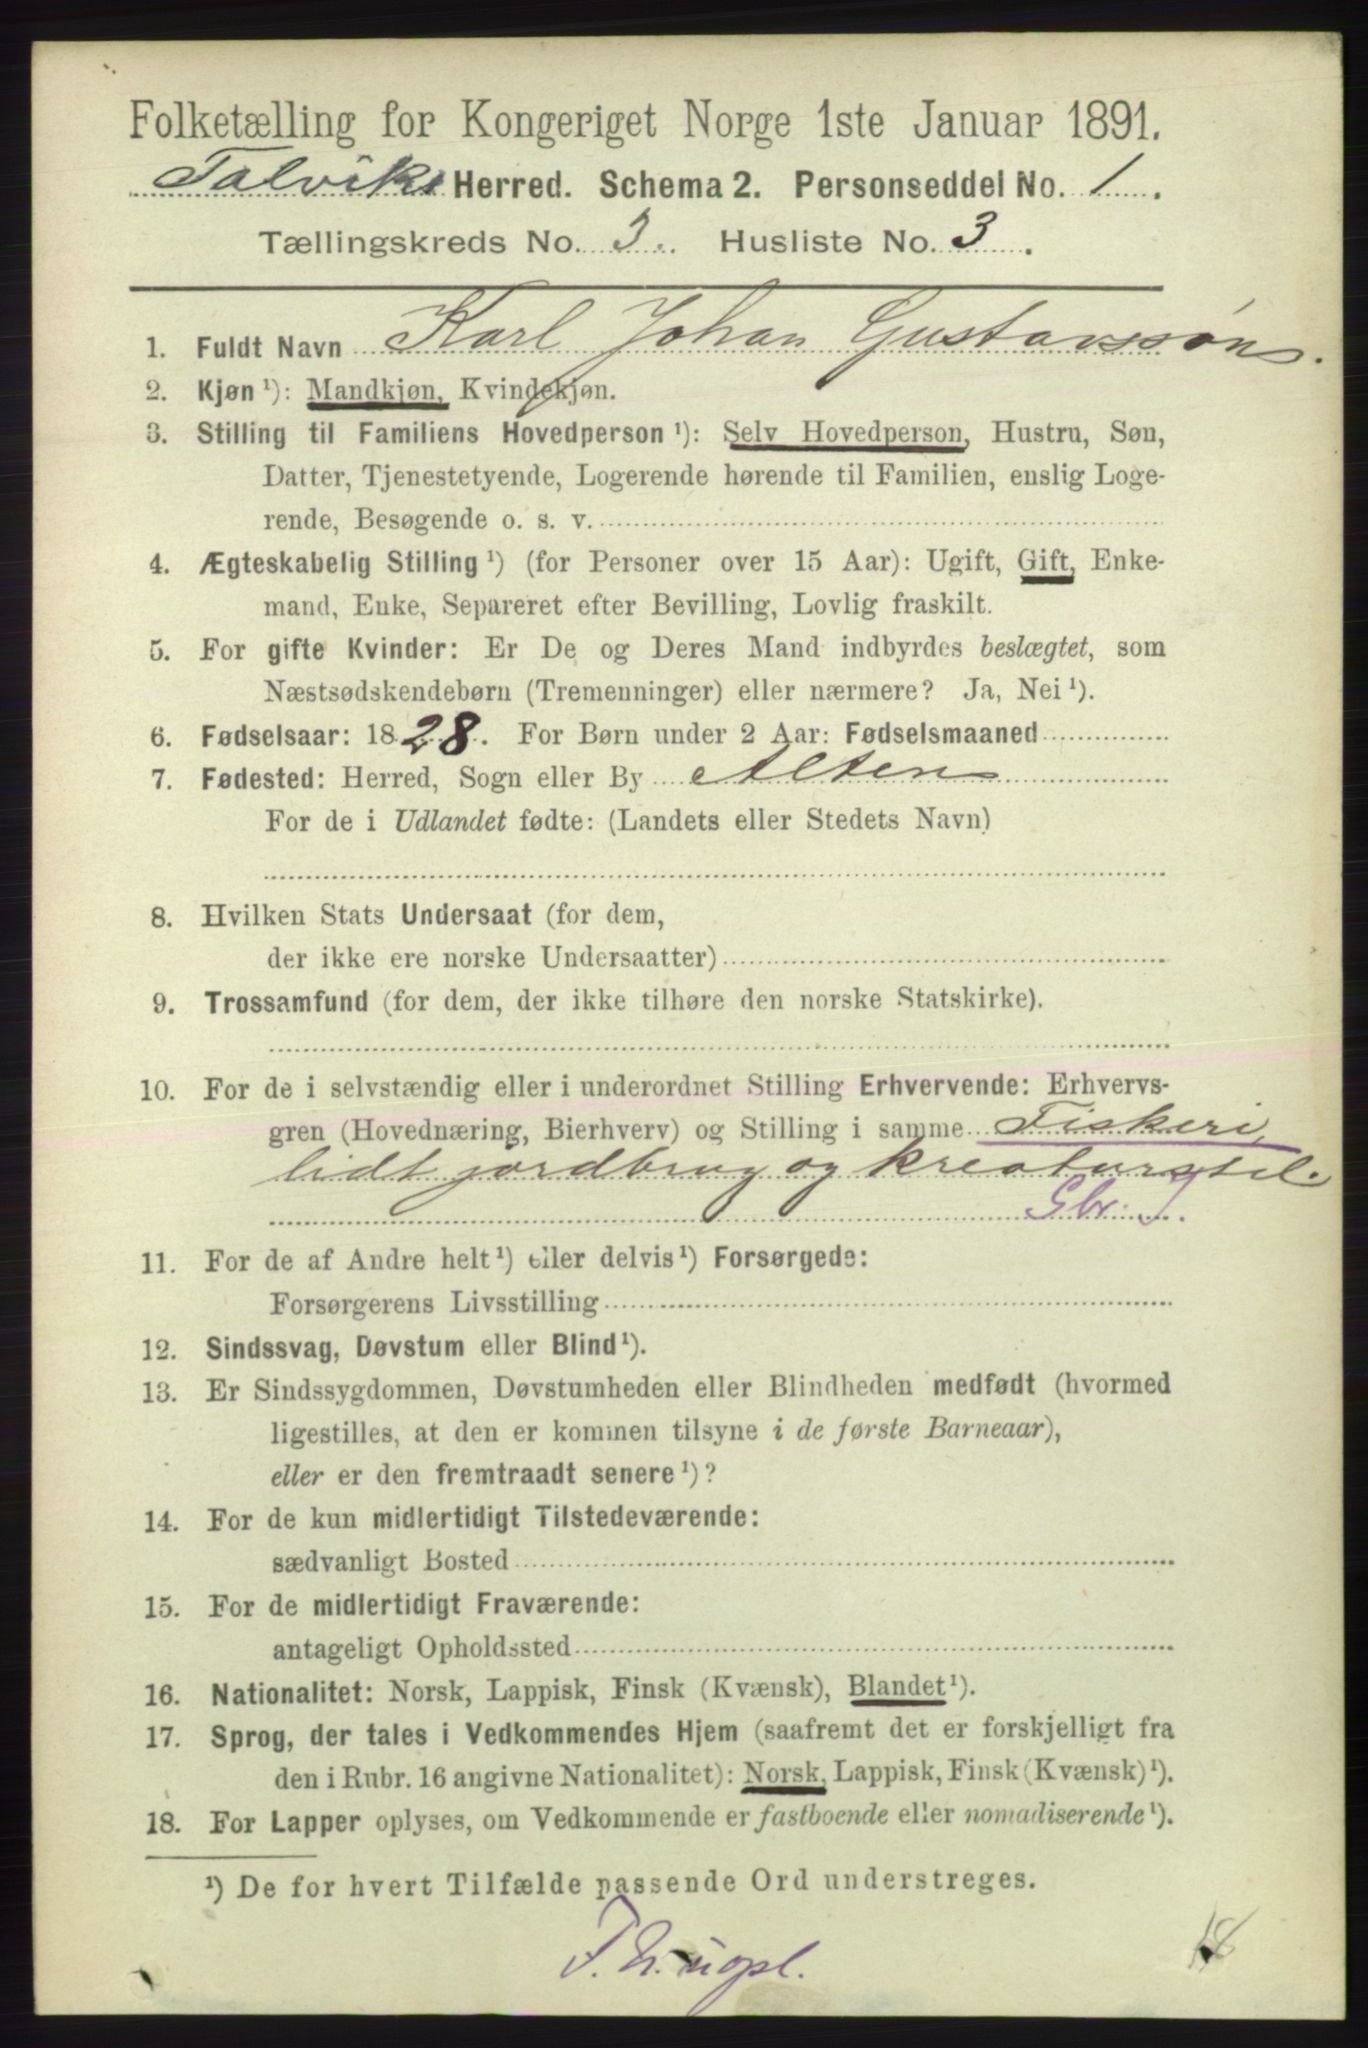 Folketælling for Kongeriget Norge 1ste Januar 1891.
Talviks Herred. Schema 2. Personseddel No. 1.
Tællingskreds No. 3. Husliste No. 3.
1. Fuldt Navn Karl Johan Gustavssøn.
2. Kjøn ¹): Mandkjøn, Kvindekjøn.
3. Stilling til Familiens Hovedperson ¹): Selv Hovedperson, Hustru, Søn,
Datter, Tjenestetyende, Logerende hørende til Familien, enslig Loge-
rende, Besøgende o. s. v.
4. Ægteskabelig Stilling ¹) (for Personer over 15 Aar): Ugift, Gift, Enke-
mand, Enke, Separeret efter Bevilling, Lovlig fraskilt.
5. For gifte Kvinder: Er De og Deres Mand indbyrdes beslægtet, som
Næstsødskendebørn (Tremenninger) eller nærmere? Ja, Nei ¹).
6. Fødselsaar: 1828. For Børn under 2 Aar: Fødselsmaaned
7. Fødested: Herred, Sogn eller By Alten
For de i Udlandet fødte: (Landets eller Stedets Navn)
8. Hvilken Stats Undersaat (for dem,
der ikke ere norske Undersaatter)
9. Trossamfund (for dem, der ikke tilhøre den norske Statskirke).
10. For de i selvstændig eller i underordnet Stilling Erhvervende: Erhvervs-
gren (Hovednæring, Bierhverv) og Stilling i samme Fiskeri,
lidt jordbrug og kreaturstel.
Gbr.
11. For de af Andre helt ¹) eller delvis ¹) Forsørgede:
Forsørgerens Livsstilling
12. Sindssvag, Døvstum eller Blind ¹).
13. Er Sindssygdommen, Døvstumheden eller Blindheden medfødt (hvormed
ligestilles, at den er kommen tilsyne i de første Barneaar),
eller er den fremtraadt senere ¹)?
14. For de kun midlertidigt Tilstedeværende:
sædvanligt Bosted
15. For de midlertidigt Fraværende:
antageligt Opholdssted
16. Nationalitet: Norsk, Lappisk, Finsk (Kvænsk), Blandet ¹).
17. Sprog, der tales i Vedkommendes Hjem (saafremt det er forskjelligt fra
den i Rubr. 16 angivne Nationalitet): Norsk, Lappisk, Finsk (Kvænsk) ¹).
18. For Lapper oplyses, om Vedkommende er fastboende eller nomadiserende ¹).
¹) De for hvert Tilfælde passende Ord understreges.